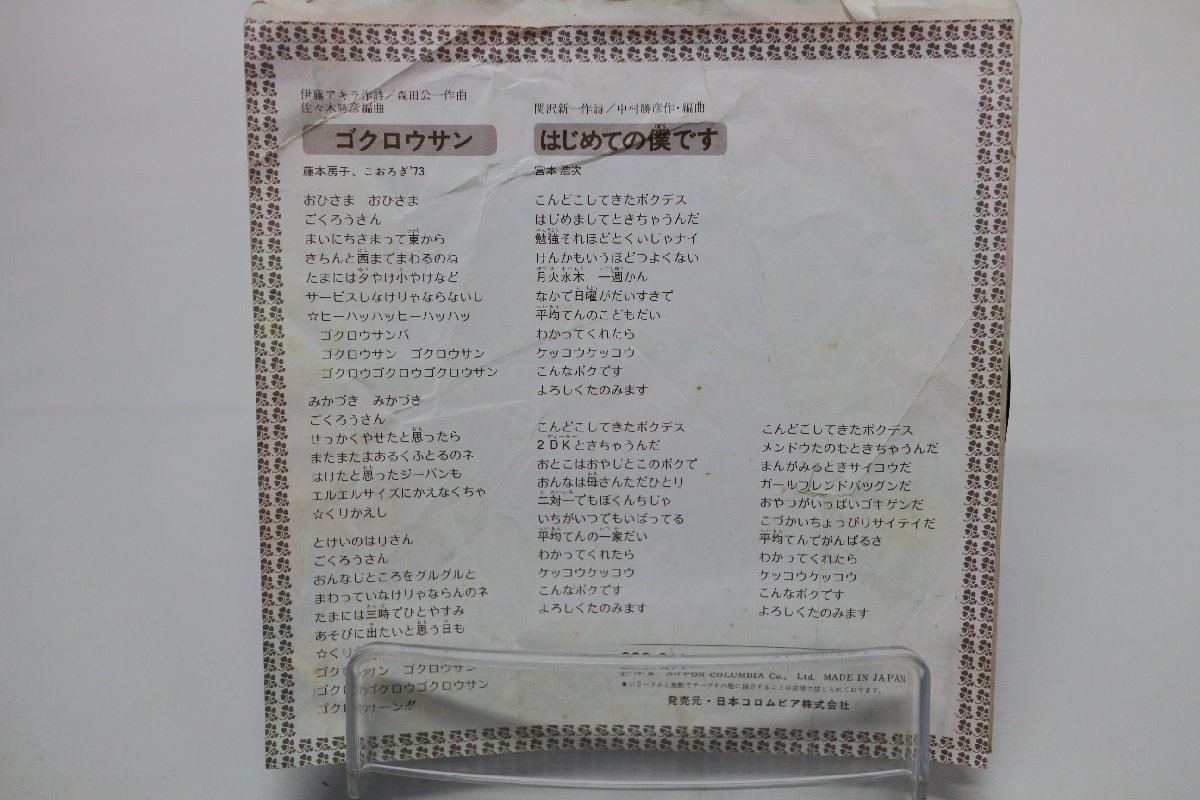 伊藤アキラ作詩／森田公一作曲
佐々木勝彦編曲
ゴクロウサン
藤本房子、こおろぎ'73
おひさま　おひさま
ごくろうさん
まいにちきまって東から
きちんと西までまわるのね
たまには夕やけ小やけなど
サービスしなけりゃならないし
☆ヒーハッハッヒーハッハッ
ゴクロウサンバ
ゴクロウサン　ゴクロウサン
ゴクロウゴクロウゴクロウサン
みかづき　みかづき
ごくろうさん
せっかくやせたと思ったら
またまたまあるくふとるのネ
はけたと思ったジーパンも
エルエルサイズにかえなくちゃ
☆くりかえし
とけいのはりさん
ごくろうさん
おんなじところをグルグルと
まわっていなけりゃならんのネ
たまには三時でひとやすみ
あそびに出たいと思う日も
☆くりか
ゴクロウサン　ゴクロウサン
ゴクロウゴクロウゴクロウサン
ゴクロウサーン!!
関沢新一作詩／中村勝彦作・編曲
はじめての僕です
宮本浩次
こんどこしてきたボクデス
はじめましてときちゃうんだ
勉強それほどとくいじゃナイ
けんかもいうほどつよくない
月火水木　一週かん
なかで日曜がだいすきで
平均てんのこどもだい
わかってくれたら
ケッコウケッコウ
こんなボクです
よろしくたのみます
こんどこしてきたボクデス
2DKときちゃうんだ
おとこはおやじとこのボクで
おんなは母さんただひとり
二対一でもぼくんちじゃ
いちがいつでもいばってる
平均てんの一家だい
わかってくれたら
ケッコウケッコウ
こんなボクです
よろしくたのみます
こんどこしてきたボクデス
メンドウたのむときちゃうんだ
まんがみるときサイコウだ
ガールフレンドバツグンだ
おやつがいっぱいゴキゲンだ
こづかいちょっぴりサイテイだ
平均てんでがんばるさ
わかってくれたら
ケッコウケッコウ
こんなボクです
よろしくたのみます
NIPPON COLUMBIA Co., Ltd. MADE IN JAPAN
★レコードから無断でテープその他に録音することは法律で禁じられております。
発売元・日本コロムビア株式会社